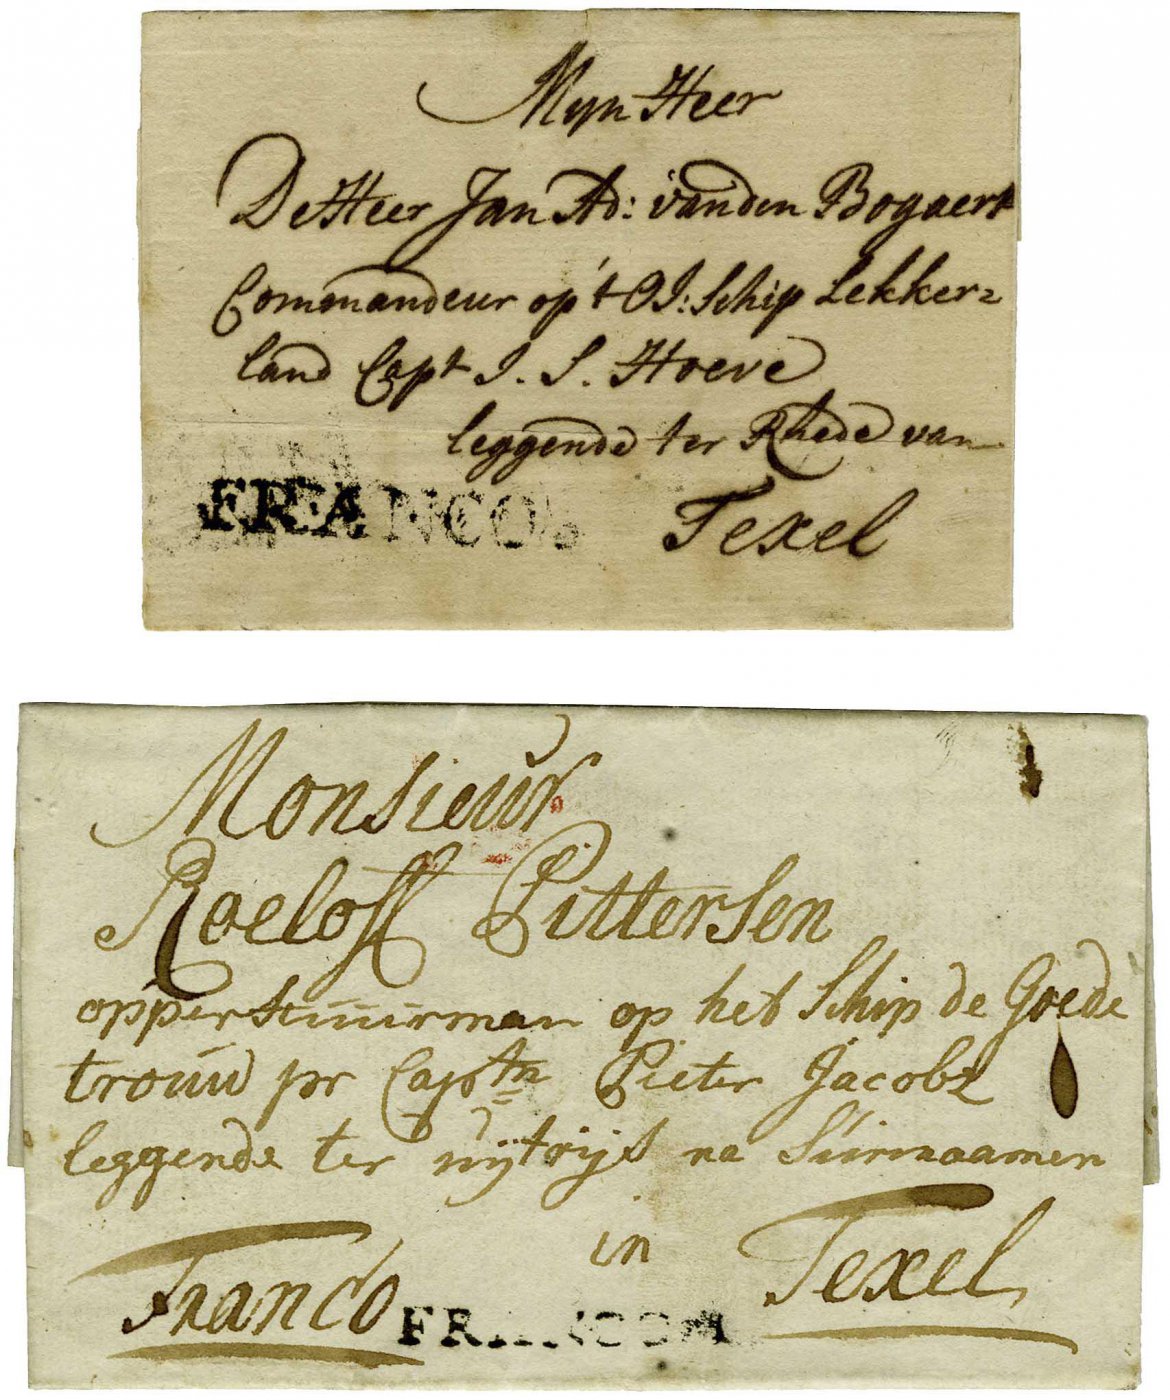 Myn Heer
De Heer Jan Ad: vanden Bogaert
Commandeur op't OI: Schip Lekker=
land Capt I. S. Hoeve
leggende ter Rhede van
FRANCO
Texel
Monsieur
Roeloff Pittersen
opperstuurman op het Schip de Goede
trouw pr Captn Pieter Jacobz
leggende ter uijtrijs na Surinaamen
in Texel
Franco FRANCO